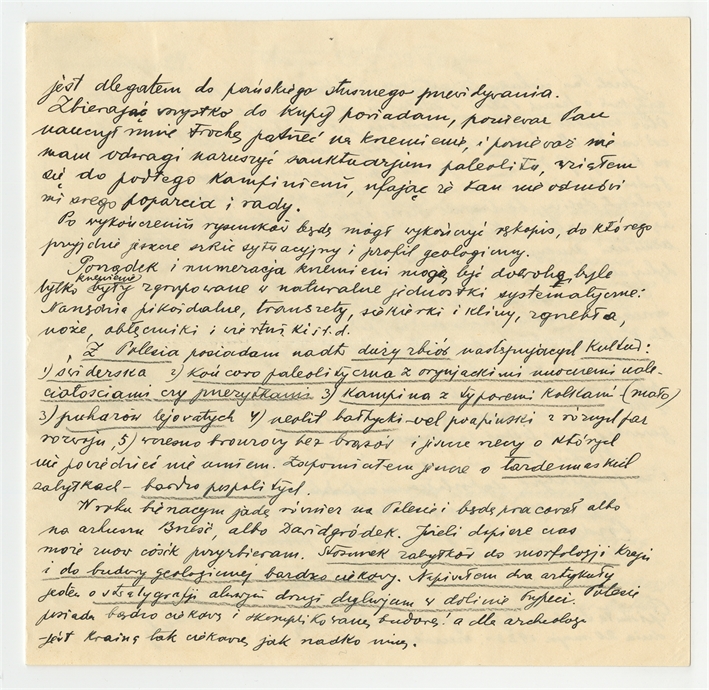 jest dlegatem do pańskiego słusznego przewidywania.
Zbierając wszystko do kupy posiadam, ponieważ Pan
nauczył mnie trochę patrzeć na krzemienie, i ponieważ nie
mam odwagi naruszyć sanktuarjum paleolitu, wziąłem
się do podłego kampinienu, ufając że Pan nie odmówi
mi swego poparcia i rady.
Po wykończeniu rysunków będę mógł wykończyć rękopis, do którego
przyjdzie jeszcze szkic sytuacyjny i profil geologiczny.
Porządek i numeracja krzemieni mogą być dowolne byle
tylko krzemienie były zgrupowane w naturalne jednostki systematyczne:
Narzędzia pikoidalne, transzety, siekierki i kliny, zgrzebła,
noże, obłęczniki i wiertniki i.t.d.
Z Polesia posiadam nadto duży zbiór następujących kultur:
1) świderska 2) końcowo paleolityczna z oryniackimi wtórnemi nale-
ciałościami czy przeżytkami 3) kampina z typowemi kolkami (mało)
3) pucharów lejowatych 4) neolit bałtycki vel prafiński z różnych faz
rozwoju 5) wczesno bronzowy bez brązów i jeszcze rzeczy o których
nic powiedzieć nie umiem. Zapomniałem jeszcze o tardenuaskich
zabytkach – bardzo pospolitych.
W roku bieżącym jadę również na Polesie i będę pracował albo
na arkuszu Brześć, albo Dawidgródek. Jeżeli dopisze czas
może znów cośik pozyzbieram. Stosunek zabytków do morfologji kraju
i do budowy geologicznej bardzo ciekawy. Napisałem dwa artykuły
jeden o stratygrafji aluwjum drugi dyluwjum w dolinie Prypeci. Polesie
posiada bardzo ciekawą i skomplikowaną budowę, a dla archeologa
jest krainą tak ciekawą jak rzadko inną.